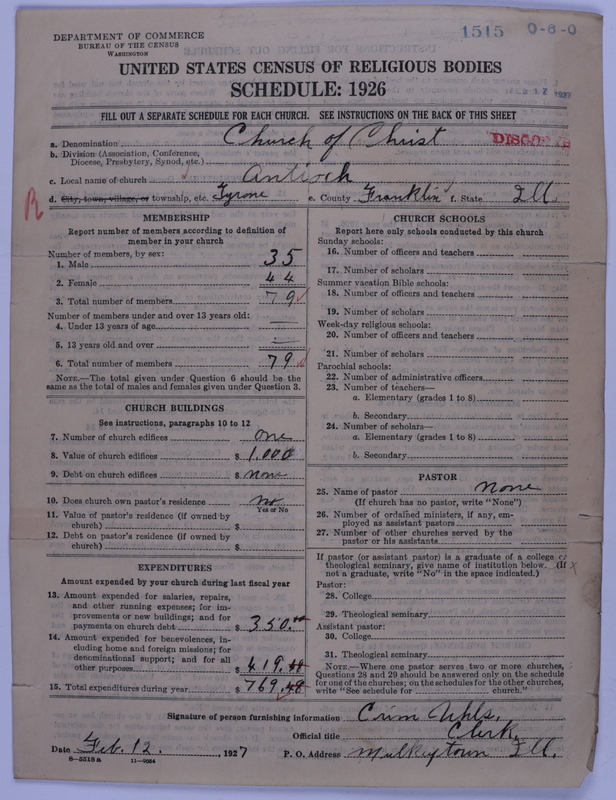 1515 0-6-0
DEPARTMENT OF COMMERCE
BUREAU OF THE CENSUS
WASHINGTON
UNITED STATES CENSUS OF RELIGIOUS BODIES
SCHEDULE: 1926
FILL OUT A SEPARATE SCHEDULE FOR EACH CHURCH. SEE INSTRUCTIONS ON THE BACK OF THIS SHEET
a. Denomination Church of Christ
b. Division (Association, Conference,
Diocese, Presbytery, Synod, etc.)
c. Local name of church Antioch
d. City, town, village, or township, etc. Tyrone e. County Franklin f. State Ill.
R
MEMBERSHIP
Report number of members according to definition of
member in your church
Number of members, by sex:
1. Male 35
2. Female 44
3. Total number of members 79
Number of members under and over 13 years old:
4. Under 13 years of age —
5. 13 years old and over —
6. Total number of members 79
NOTE.—The total given under Question 6 should be the
same as the total of males and females given under Question 3.
CHURCH BUILDINGS
See instructions, paragraphs 10 to 12
7. Number of church edifices one
8. Value of church edifices $ 1,000
9. Debt on church edifices $ none
10. Does church own pastor's residence no
Yes or No
11. Value of pastor's residence (if owned by
church) $
12. Debt on pastor's residence (if owned by
church) $
EXPENDITURES
Amount expended by your church during last fiscal year
13. Amount expended for salaries, repairs,
and other running expenses; for im-
provements or new buildings; and for
payments on church debt $ 350.00
14. Amount expended for benevolences, in-
cluding home and foreign missions; for
denominational support; and for all
other purposes $ 419.48
15. Total expenditures during year $ 769.48
CHURCH SCHOOLS
Report here only schools conducted by this church
Sunday schools:
16. Number of officers and teachers
17. Number of scholars
Summer vacation Bible schools:
18. Number of officers and teachers
19. Number of scholars
Week-day religious schools:
20. Number of officers and teachers
21. Number of scholars
Parochial schools:
22. Number of administrative officers
23. Number of teachers—
a. Elementary (grades 1 to 8)
b. Secondary
24. Number of scholars—
a. Elementary (grades 1 to 8)
b. Secondary $
PASTOR
25. Name of pastor None
(If church has no pastor, write "None")
26. Number of ordained ministers, if any, em-
ployed as assistant pastors
27. Number of other churches served by the
pastor or his assistants
If pastor (or assistant pastor) is a graduate of a college or
theological seminary, give name of institution below. (If
not a graduate, write "No" in the space indicated.)
Pastor:
28. College
29. Theological seminary
Assistant pastor:
30. College
31. Theological seminary
NOTE.—Where one pastor serves two or more churches,
Questions 28 and 29 should be answered only on the schedule
for one of the churches; on the schedules for the other churches,
write "See schedule for church."
Signature of person furnishing information
Official title Clerk.
Date Feb. 12. , 1927 P. O. Address Mulkeytown Ill.
8—5518a 11—9054